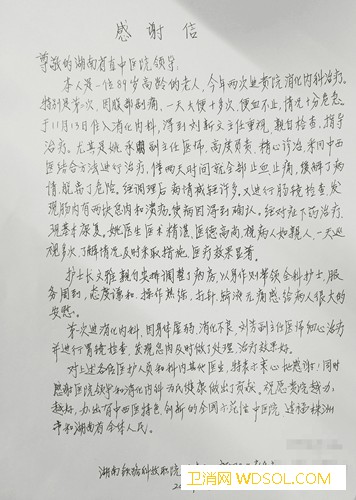 感谢信
尊敬的湖南省直中医院领导:
本人是一位89岁高龄的老人,今年两次进贵院消化内科治疗。
特别是第二次,因腹部剧痛,一天大便十多次,便血不止,情况十分危急
于11月13日住入消化内科,得到刘新文主任重视,亲自检查,指导
治疗。尤其是姚 副主任医师,高度负责,精心诊治,采用中西
医结合方法进行治疗,仅两天时间就全部止血止痛,缓解了病
情,脱离了危险。经调理后病情减轻许多,又进行肠镜检查,发
现肠内有两块息肉和溃疡,使病因得到确认。经对症下药治疗,
现基本康复。姚医生医术精湛,医德高尚,视病人如亲人,一天巡
视多次,了解情况及时采取措施,医疗效果显著。
护士长文雅,亲为安排调整了病房,以身作则带领全科护士,服
务周到,态度谦和,操作熟练,打针输液无痛感,给病人很大的
安慰。
第一次进消化内科,因身体虚弱,消化不良,刘芳副主任医师细心治疗
并进行胃镜检查,发现息肉及时做了处理,治疗效果好。
对上述各位医护人员和科内其他医生,特表示衷心地感谢!同时
感谢医院领导和消化内科为民健康做出了贡献。祝愿贵院越办
越好,办出有中医特色创新的全国示范性中医院,造福株洲
市和湖南省全体人民。
湖南铁路科技职院
20
卫消网 WDSOL.COM
卫消网 WDSOL.COM